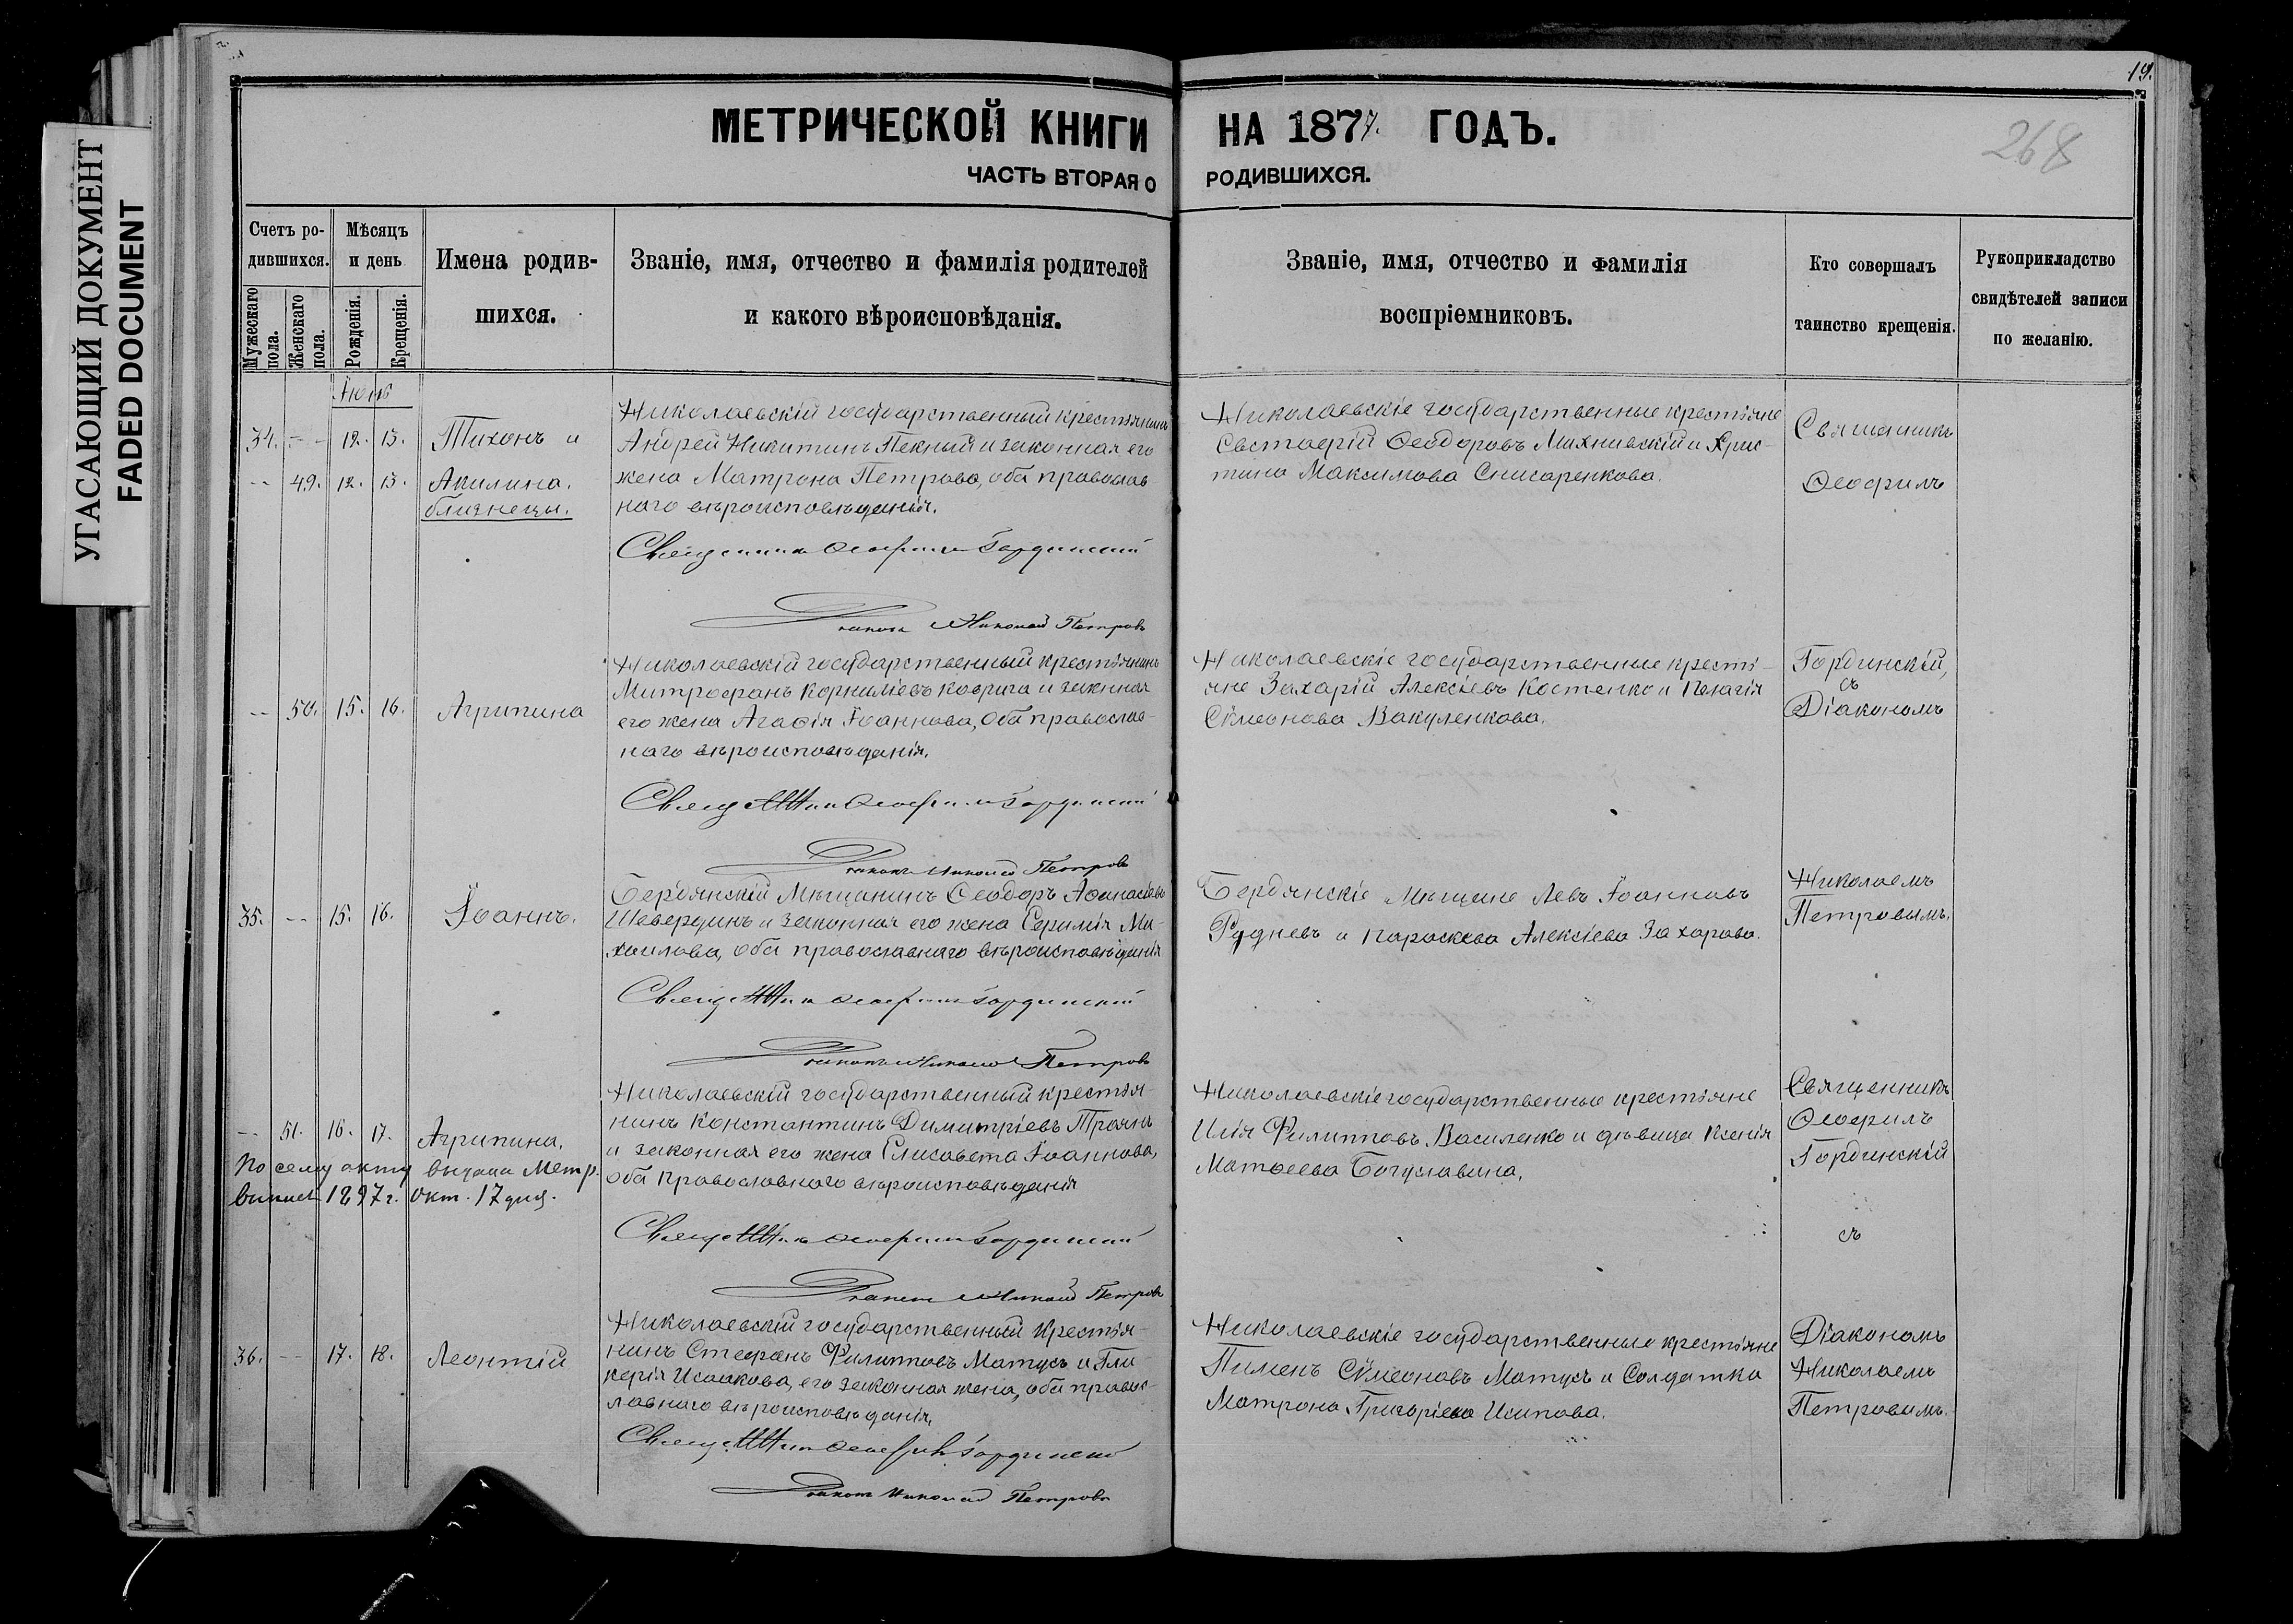 УГАСАЮЩИЙ ДОКУМЕНТ
FADED DOCUMENT
МЕТРИЧЕСКОЙ КНИГИ НА 1877. ГОДЪ.
ЧАСТЬ ВТОРАЯ О РОДИВШИХСЯ.
19.
268
Счетъ ро-
дившихся.
Мужескаго пола.
Женскаго пола.
Мѣсяцъ
и день
Рожденія.
Крещенія.
Имена родив-
шихся.
Званіе, имя, отчество и фамилія родителей
и какого вѣроисповѣданія.
Званіе, имя, отчество и фамилія
воспріемниковъ.
Кто совершалъ
таинство крещенія.
Рукоприкладство
свидѣтелей записи
по желанію.
34. -- 12. 13. Тихонъ и
-- 49. 12. 13. Акилина.
близнецы.
Николаевскій государственный крестьянинъ
Андрей Никитинъ и законная его
жена Матрона Петрова, оба православ
наго вѣроисповѣданія.
Священникъ Ѳеофилъ Гординскій
Діаконъ Николай Петровъ
Николаевскіе государственные крестьяне
Евстафій Ѳеодоровъ Михниевскій и Хрис-
тина Максимова Снисаренкова.
Священникъ
Ѳеофилъ
-- 50. 15. 16. Агрипина
Николаевскій государственный крестьянинъ
Митрофанъ Корниліевъ Коврига и законная
его жена Агафія Іоаннова, оба православ-
наго вѣроисповѣданія.
Священникъ Ѳеофилъ Гординскій
Діаконъ Николай Петровъ
Николаевскіе государственные крестья-
яне Захарій Алексіевъ Костенко и Пелагія
Сѵмеонова Вакуленкова.
Гординскій,
съ
Діакономъ
35. -- 15. 16. Іоаннъ.
Бердянскій Мѣщанинъ Ѳеодоръ Аѳанасіевъ
и законная его жена Ми-
хаилова, оба православнаго вѣроисповѣданія
Священникъ Ѳеофилъ Гординскій
Діаконъ Николай Петровъ
Бердянскіе Мѣщане Левъ Іоанновъ
Рудневъ и Параскева Алексіева Захарова.
Николаемъ
Петровымъ.
-- 51. 16. 17. Агрипина.
По сему акту выдана Метр.
выпись 1897 г. окт. 17 дня.
Николаевскій государственный крестья-
нинъ Константинъ Димитріевъ Троянъ
и законная его жена Елисавета Іоаннова,
оба Православнаго вѣроисповѣданія
Священникъ Ѳеофилъ Гординскій
Діаконъ Николай Петровъ
Николаевскіе государственные крестьяне
Илія Филипповъ Василенко и дѣвица Ксенія
Матѳеева Богуславина.
Священникъ
Ѳеофилъ
Гординскій
съ
36. -- 17. 18. Леонтій
Николаевскій государственный крестья-
нинъ Стефанъ Филипповъ Матусъ и Гли
керія Исаакова, его законная жена, оба правос-
лавнаго вѣроисповѣданія.
Священникъ Ѳеофилъ Гординскій
Діаконъ Николай Петровъ
Николаевскіе государственные крестьяне
Пименъ Сѵмеоновъ Матусъ и Солдатка
Матрона Григоріева Исипова.
Діакономъ
Николаемъ
Петровымъ.